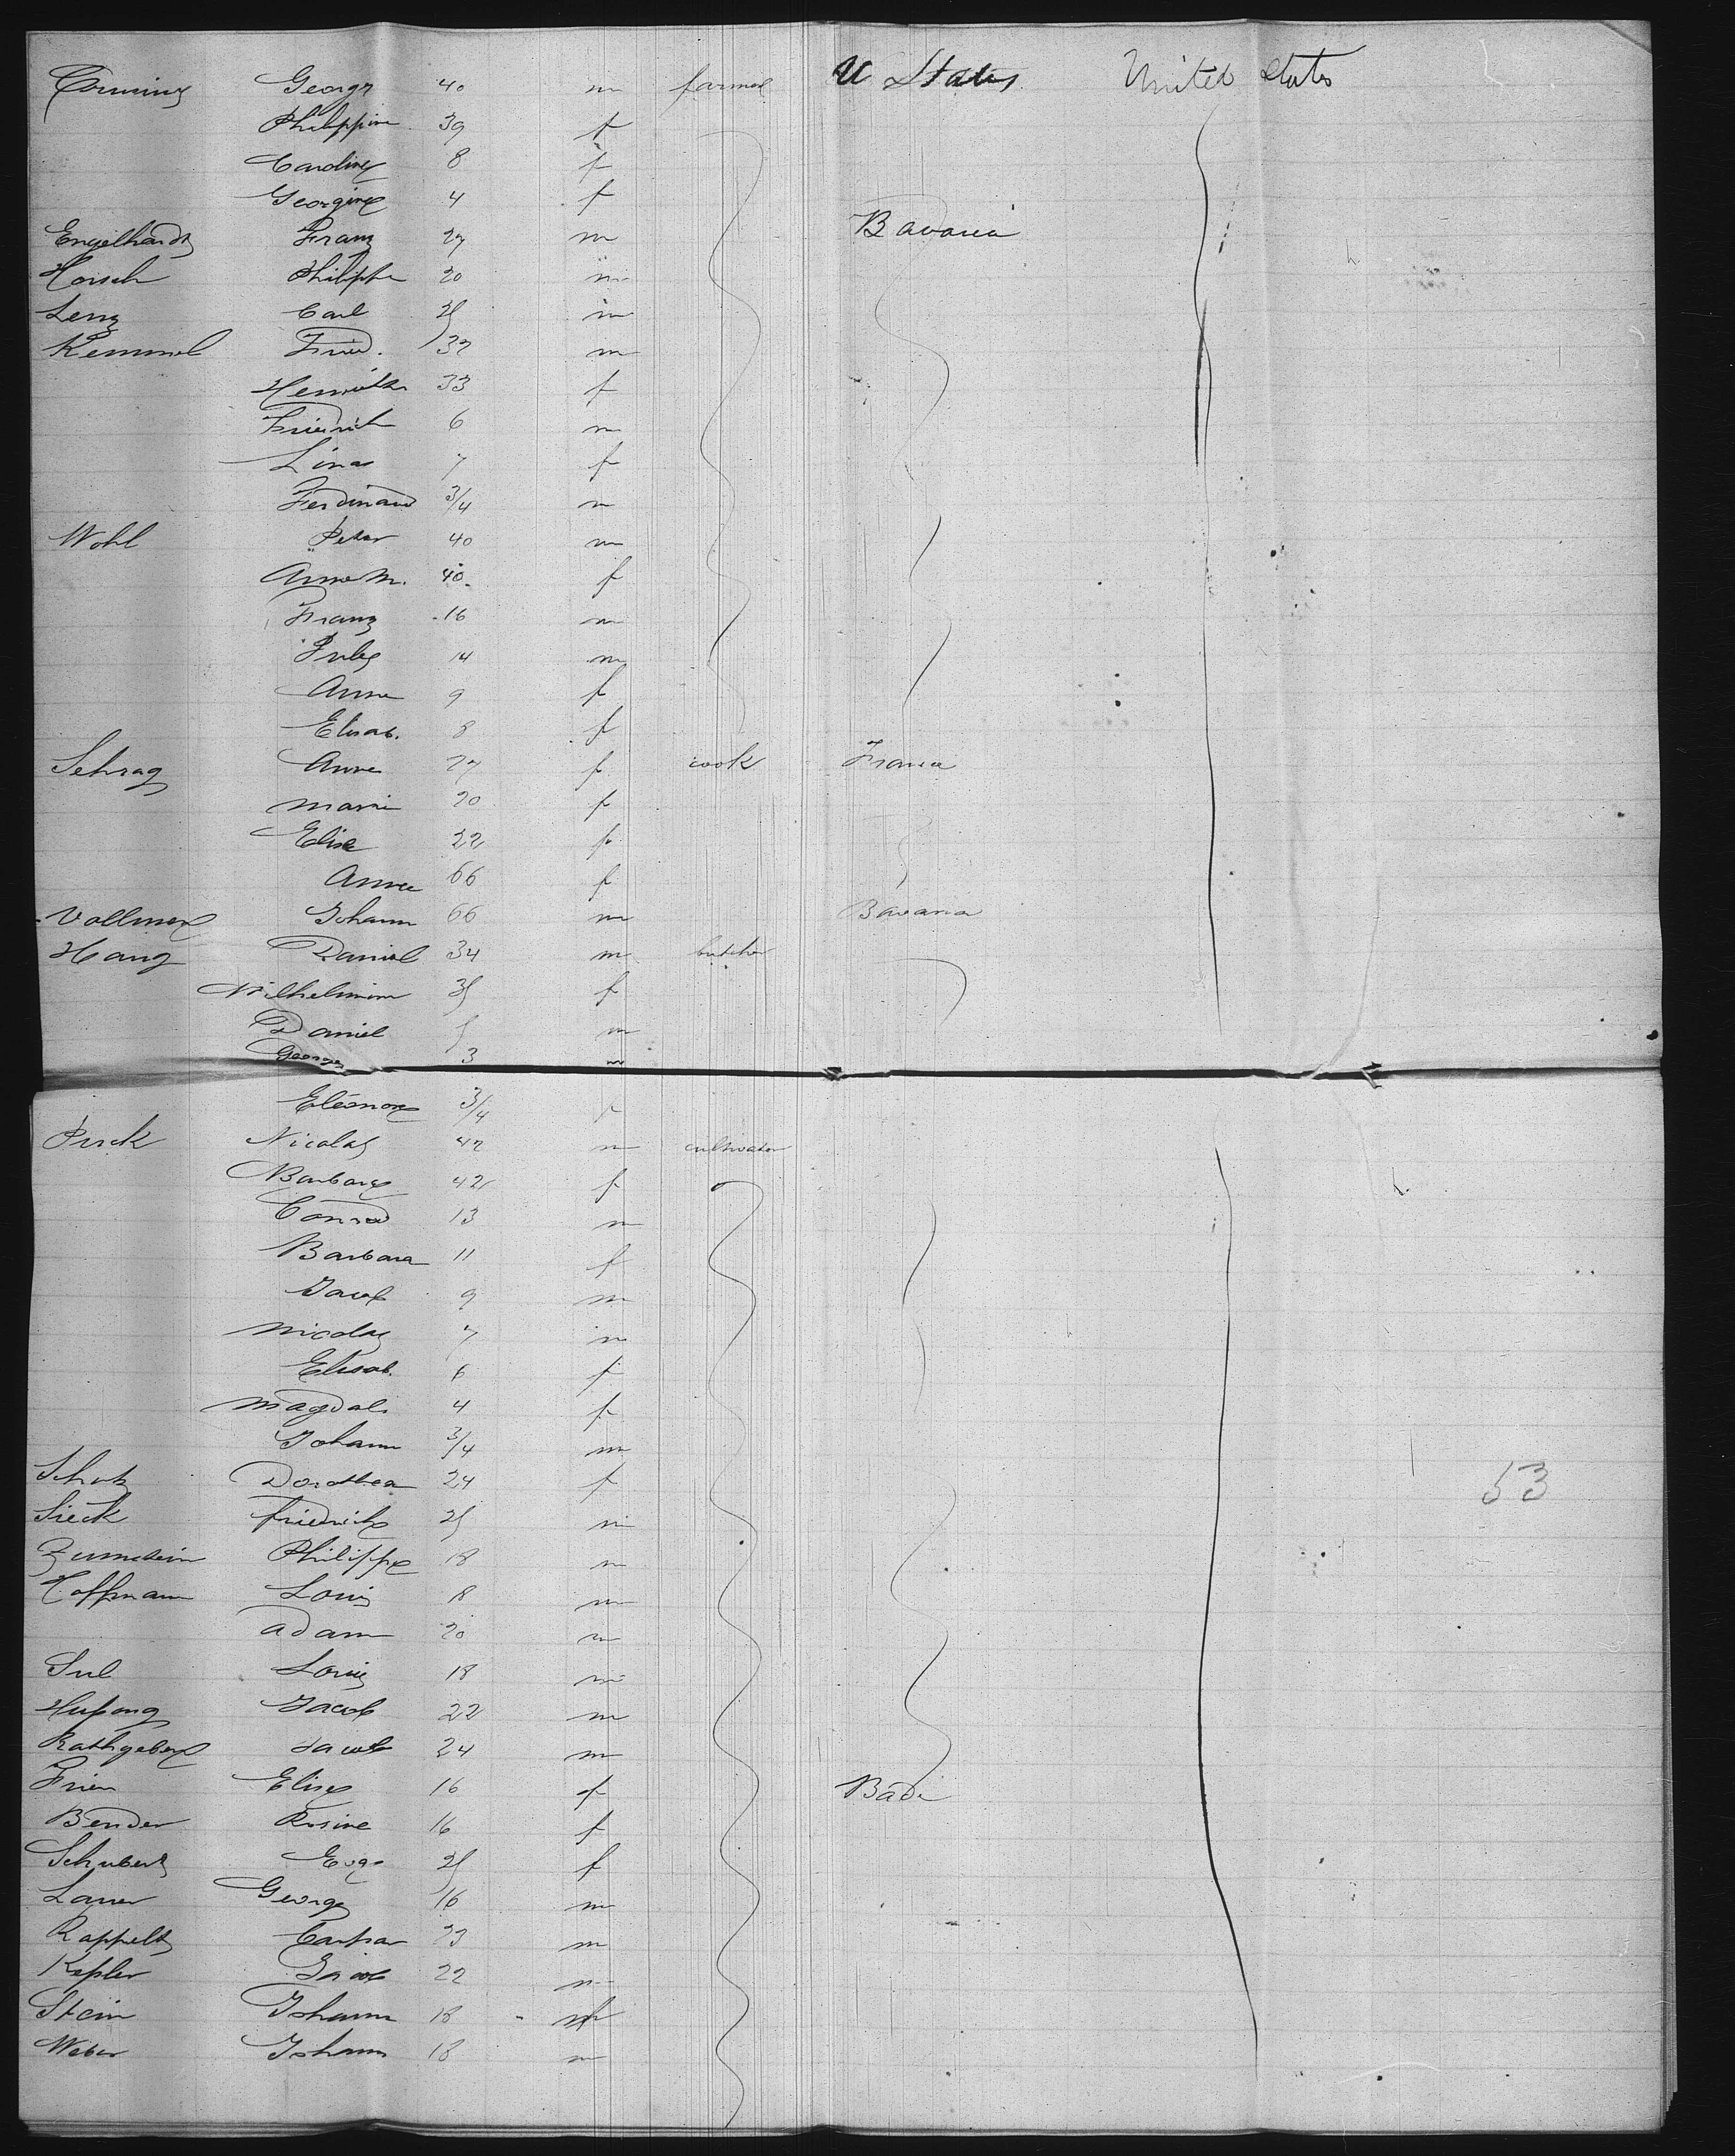 George 40 m farmer U States United States
Philippine 39 f
Caroline 8 f
Georgine 4 f
Engelhardt Franz 27 m Bavaria
Horsch Philippe 20 m
Lenz Carl 25 m
Kemmel Fried. 32 m
Henriette 33 f
Friedrich 6 m
Lina 7 f
Ferdinand 3/4 m
Wohl Peter 40 m
Anna M. 40 f
Franz 16 m
Jules 14 m
Anna 9 f
Elisab. 8 f
Schrag Anna 27 f cook France
Marie 20 f
Elise 22 f
Anna 66 f
Vollmer Johann 66 m Bavaria
Haug Daniel 34 m butcher
Wilhelmine 35 f
Daniel 5 m
George 3 m
Eléonore 3/4 f
Pirck Nicolas 42 m cultivator
Barbara 42 f
Conrad 13 m
Barbara 11 f
Jacob 9 m
Nicolas 7 m
Elisab. 6 f
Magdal. 4 f
Johann 3/4 m
Schutz Dorothea 24 f 53
Sieck Friedrich 25 m
Zumstein Philippe 18 m
Hoffmann Louis 18 m
Adam 20 m
Louis 18 m
Jacob 22 m
Rathgeber Jacob 24 m
Elise 16 f Bade
Bender Rosine 16 f
Schubert Eva 25 f
Lauer George 16 m
Rappelt Caspar 23 m
Kepler Jacob 22 m
Stein Johann 18 m
Weber Johann 18 m